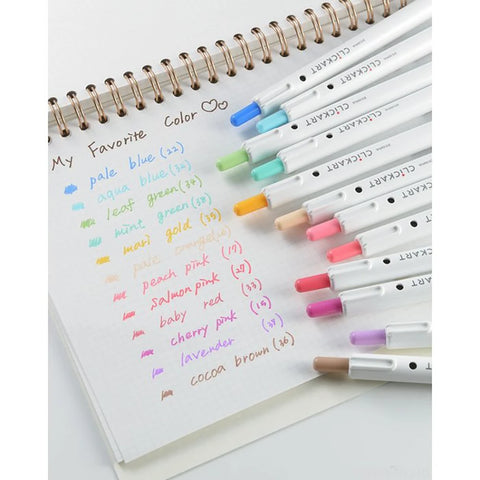 My Favorite Color ♡♡
pale blue (22)
aqua blue (32)
leaf green (34)
mint green (38)
mari gold (35)
pale orange
peach pink (17)
salmon pink (27)
baby red (33)
cherry pink (15)
lavender (37)
cocoa brown (36)
CLICKART
CLICKART
CLICKART
CLICKART
CLICKART
CLICKART
CLICKART
CLICKART
CLICKART